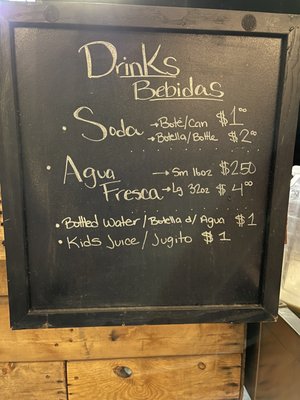 Drinks
Bebidas
• Soda → Bote/Can $1⁰⁰
→ Botella/Bottle $2⁰⁰
• Agua → Sm 16oz $2⁵⁰
Fresca → Lg 32oz $4⁰⁰
• Bottled Water/Botella d/Agua $1
• Kids Juice/Jugito $1